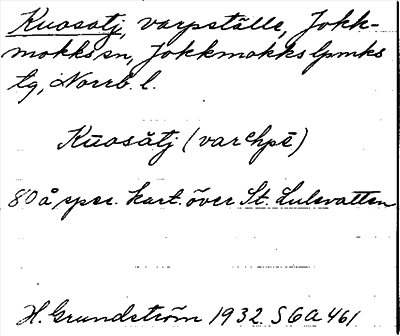 Kuosatj, varpställe, Jokk-
mokks sn, Jokkmokks lpmks
tg, Norrb. l.
Kuosātj (varchpē)
80 å, spec. kart. över St. Lulevatten
H. Grundström 1932. SGA 461